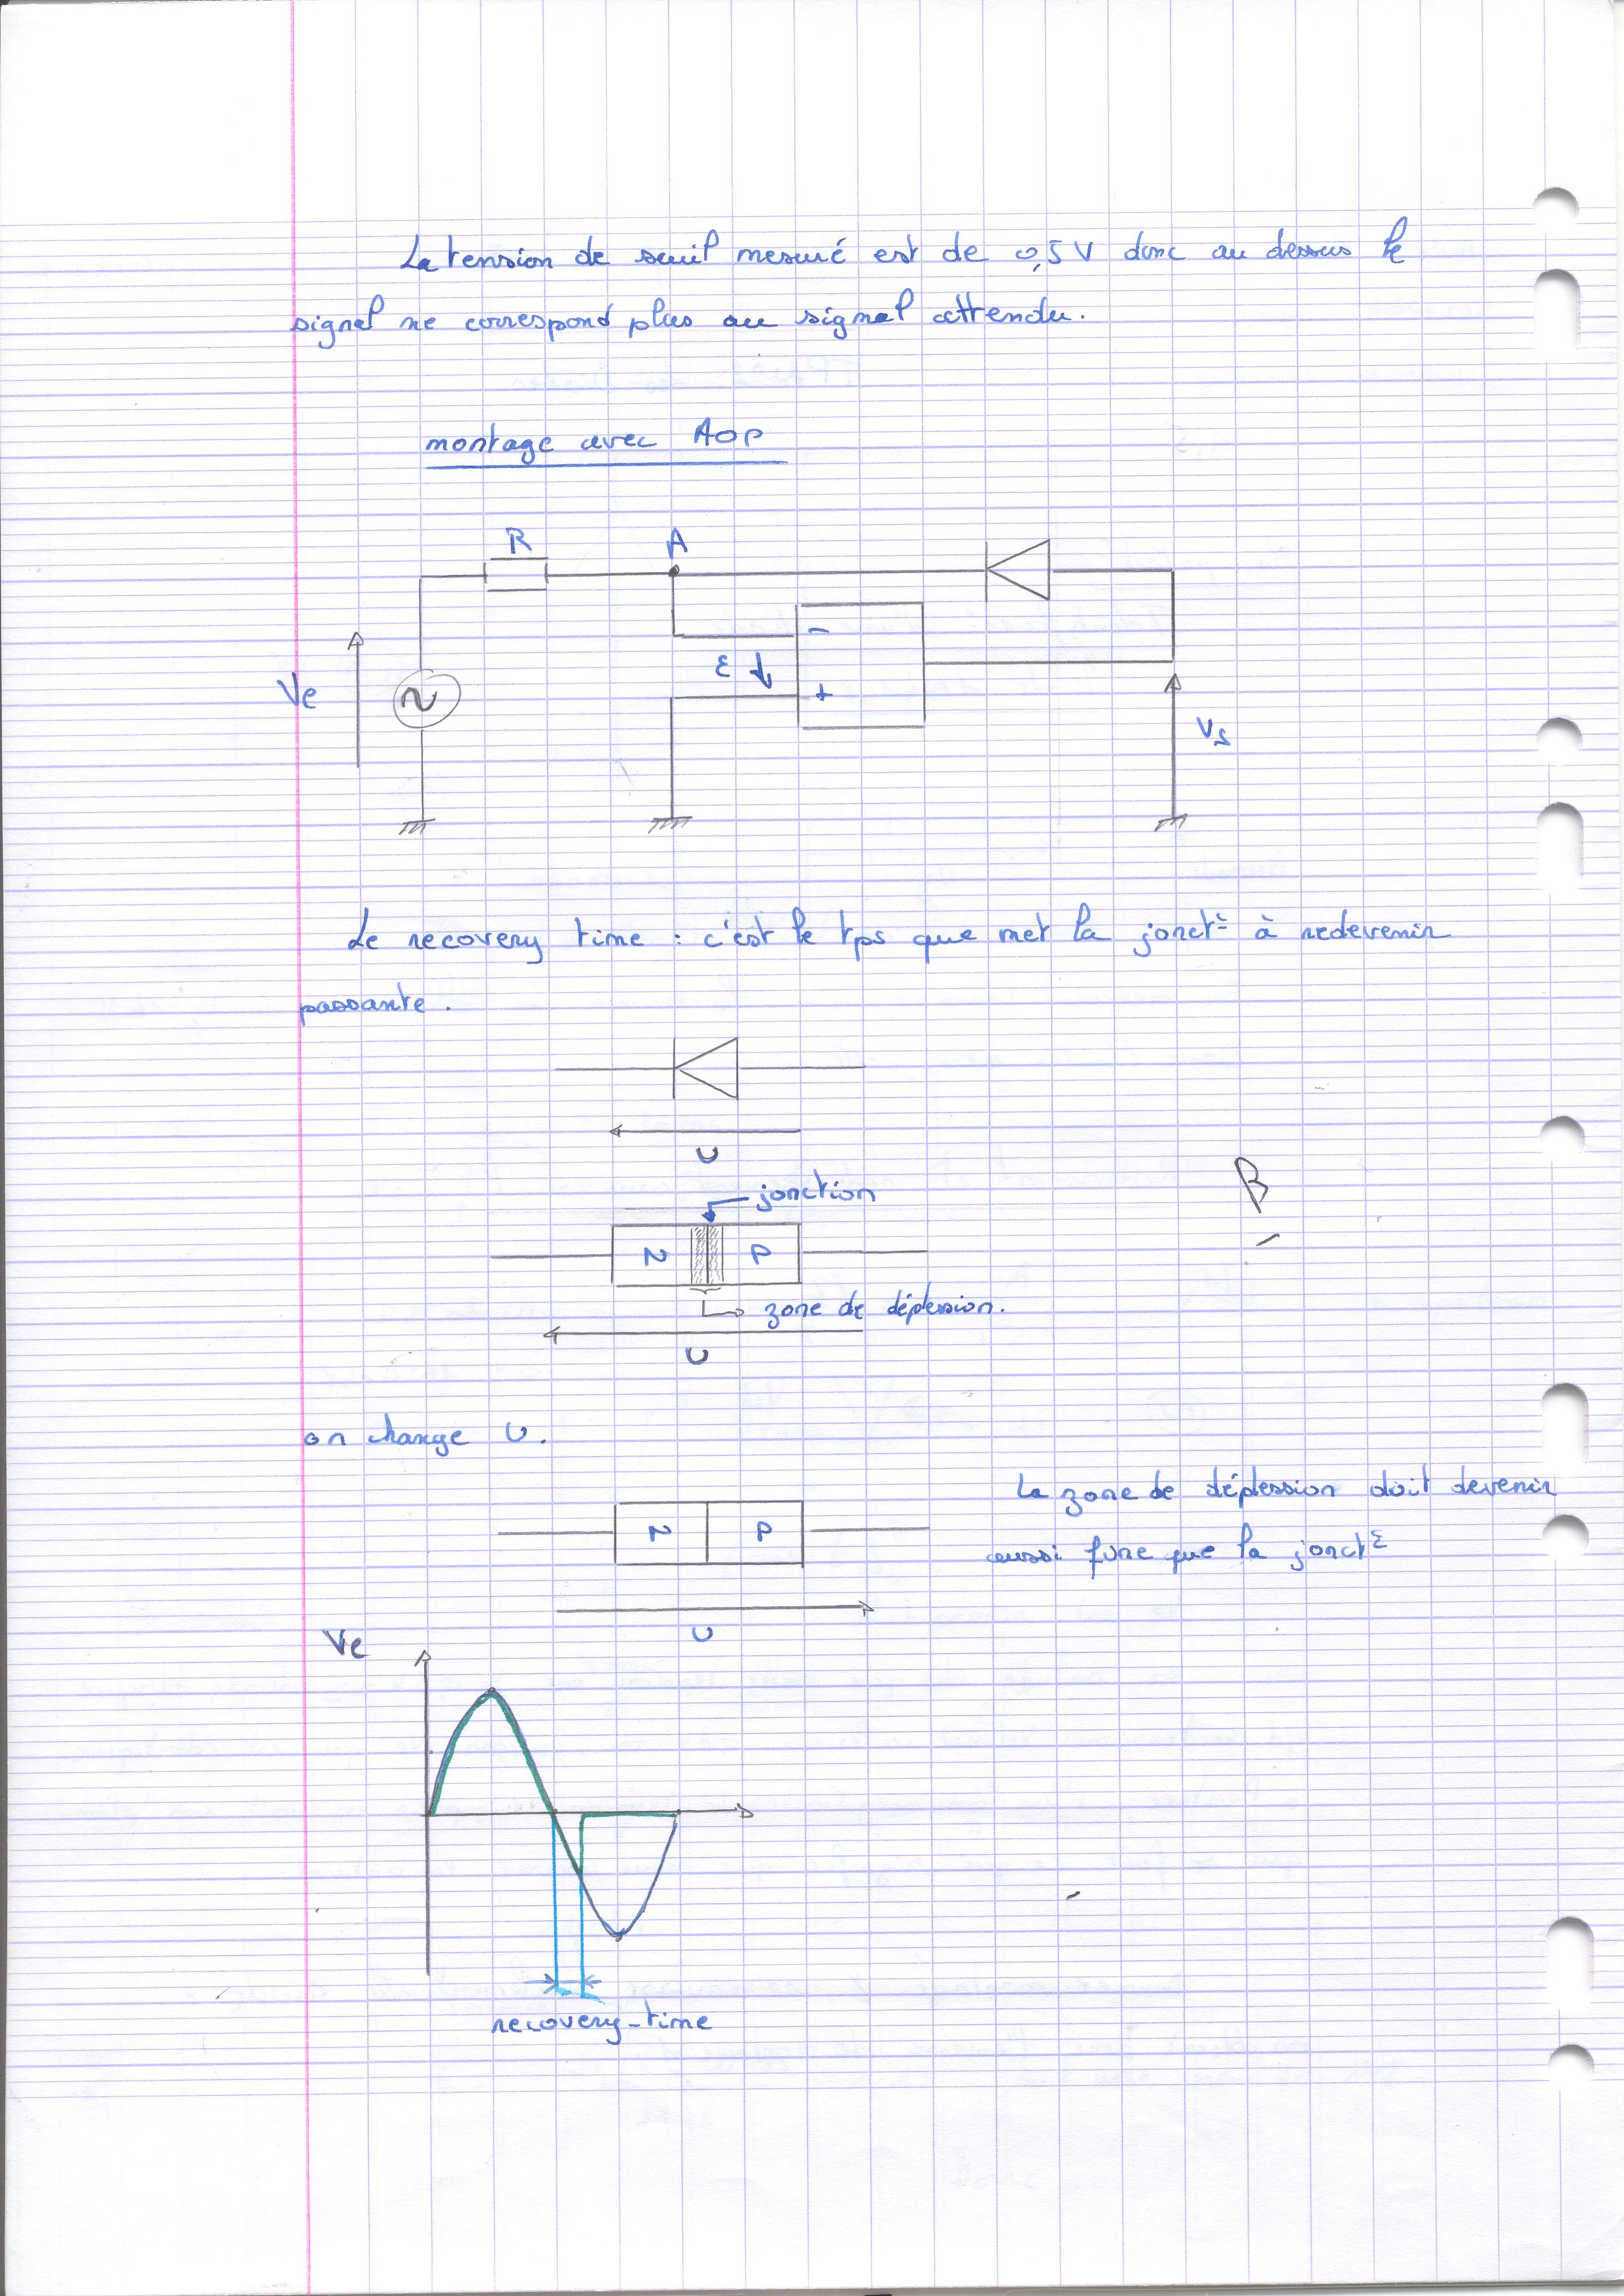 La tension de seuil mesuré est de 0,5 V donc au dessus le
signal ne correspond plus au signal attendu.
montage avec AOP
R
A
-
ε
+
Ve
Vs
Le recovery time : c'est le tps que met la jonct° à redevenir
passante.
U
jonction
N P
zone de déplession.
U
on change U.
La zone de déplession doit devenir
N P
aussi fine que la jonct°
U
Ve
recovery-time